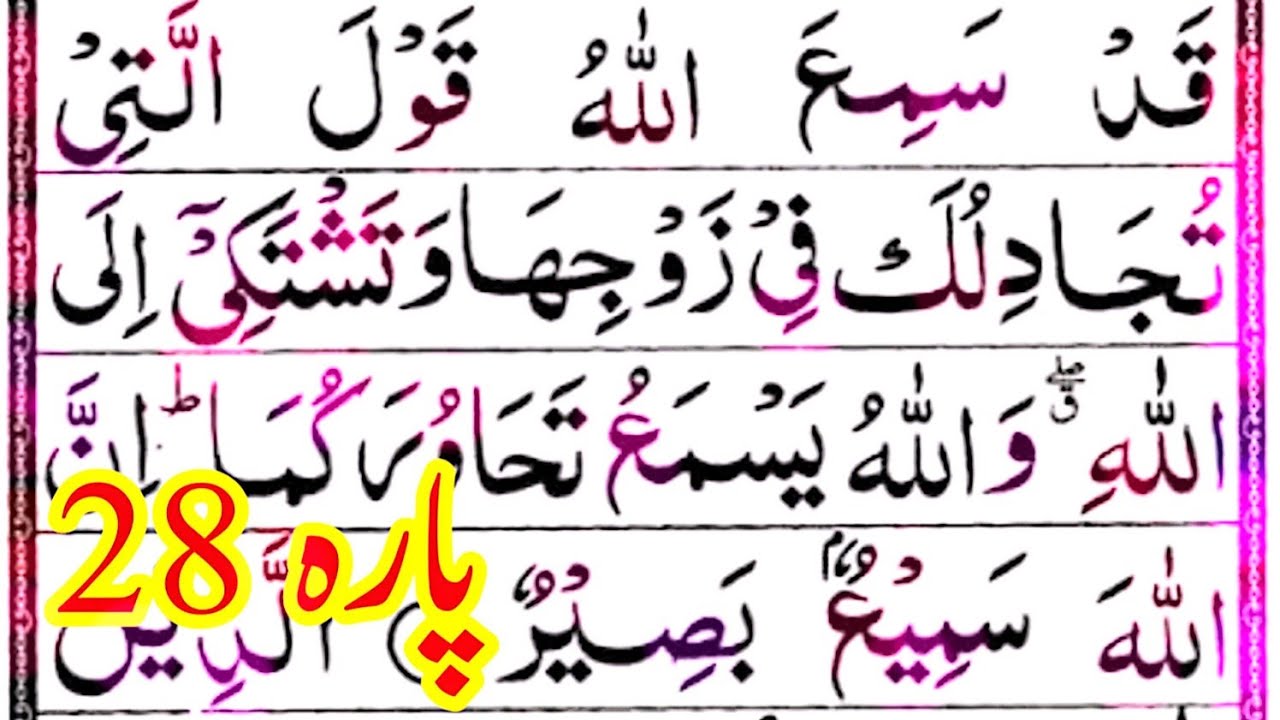 قَدْ سَمِعَ اللّٰهُ قَوْلَ الَّتِىْ
تُجَادِلُكَ فِىْ زَوْجِهَا وَ تَشْتَكِىْۤ اِلَى
اللّٰهِ ۖۗ وَ اللّٰهُ يَسْمَعُ تَحَاوُرَكُمَا ؕ اِنَّ
اللّٰهَ سَمِيْعٌۢ بَصِيْرٌ ۝ الَّذِيْنَ
پارہ 28